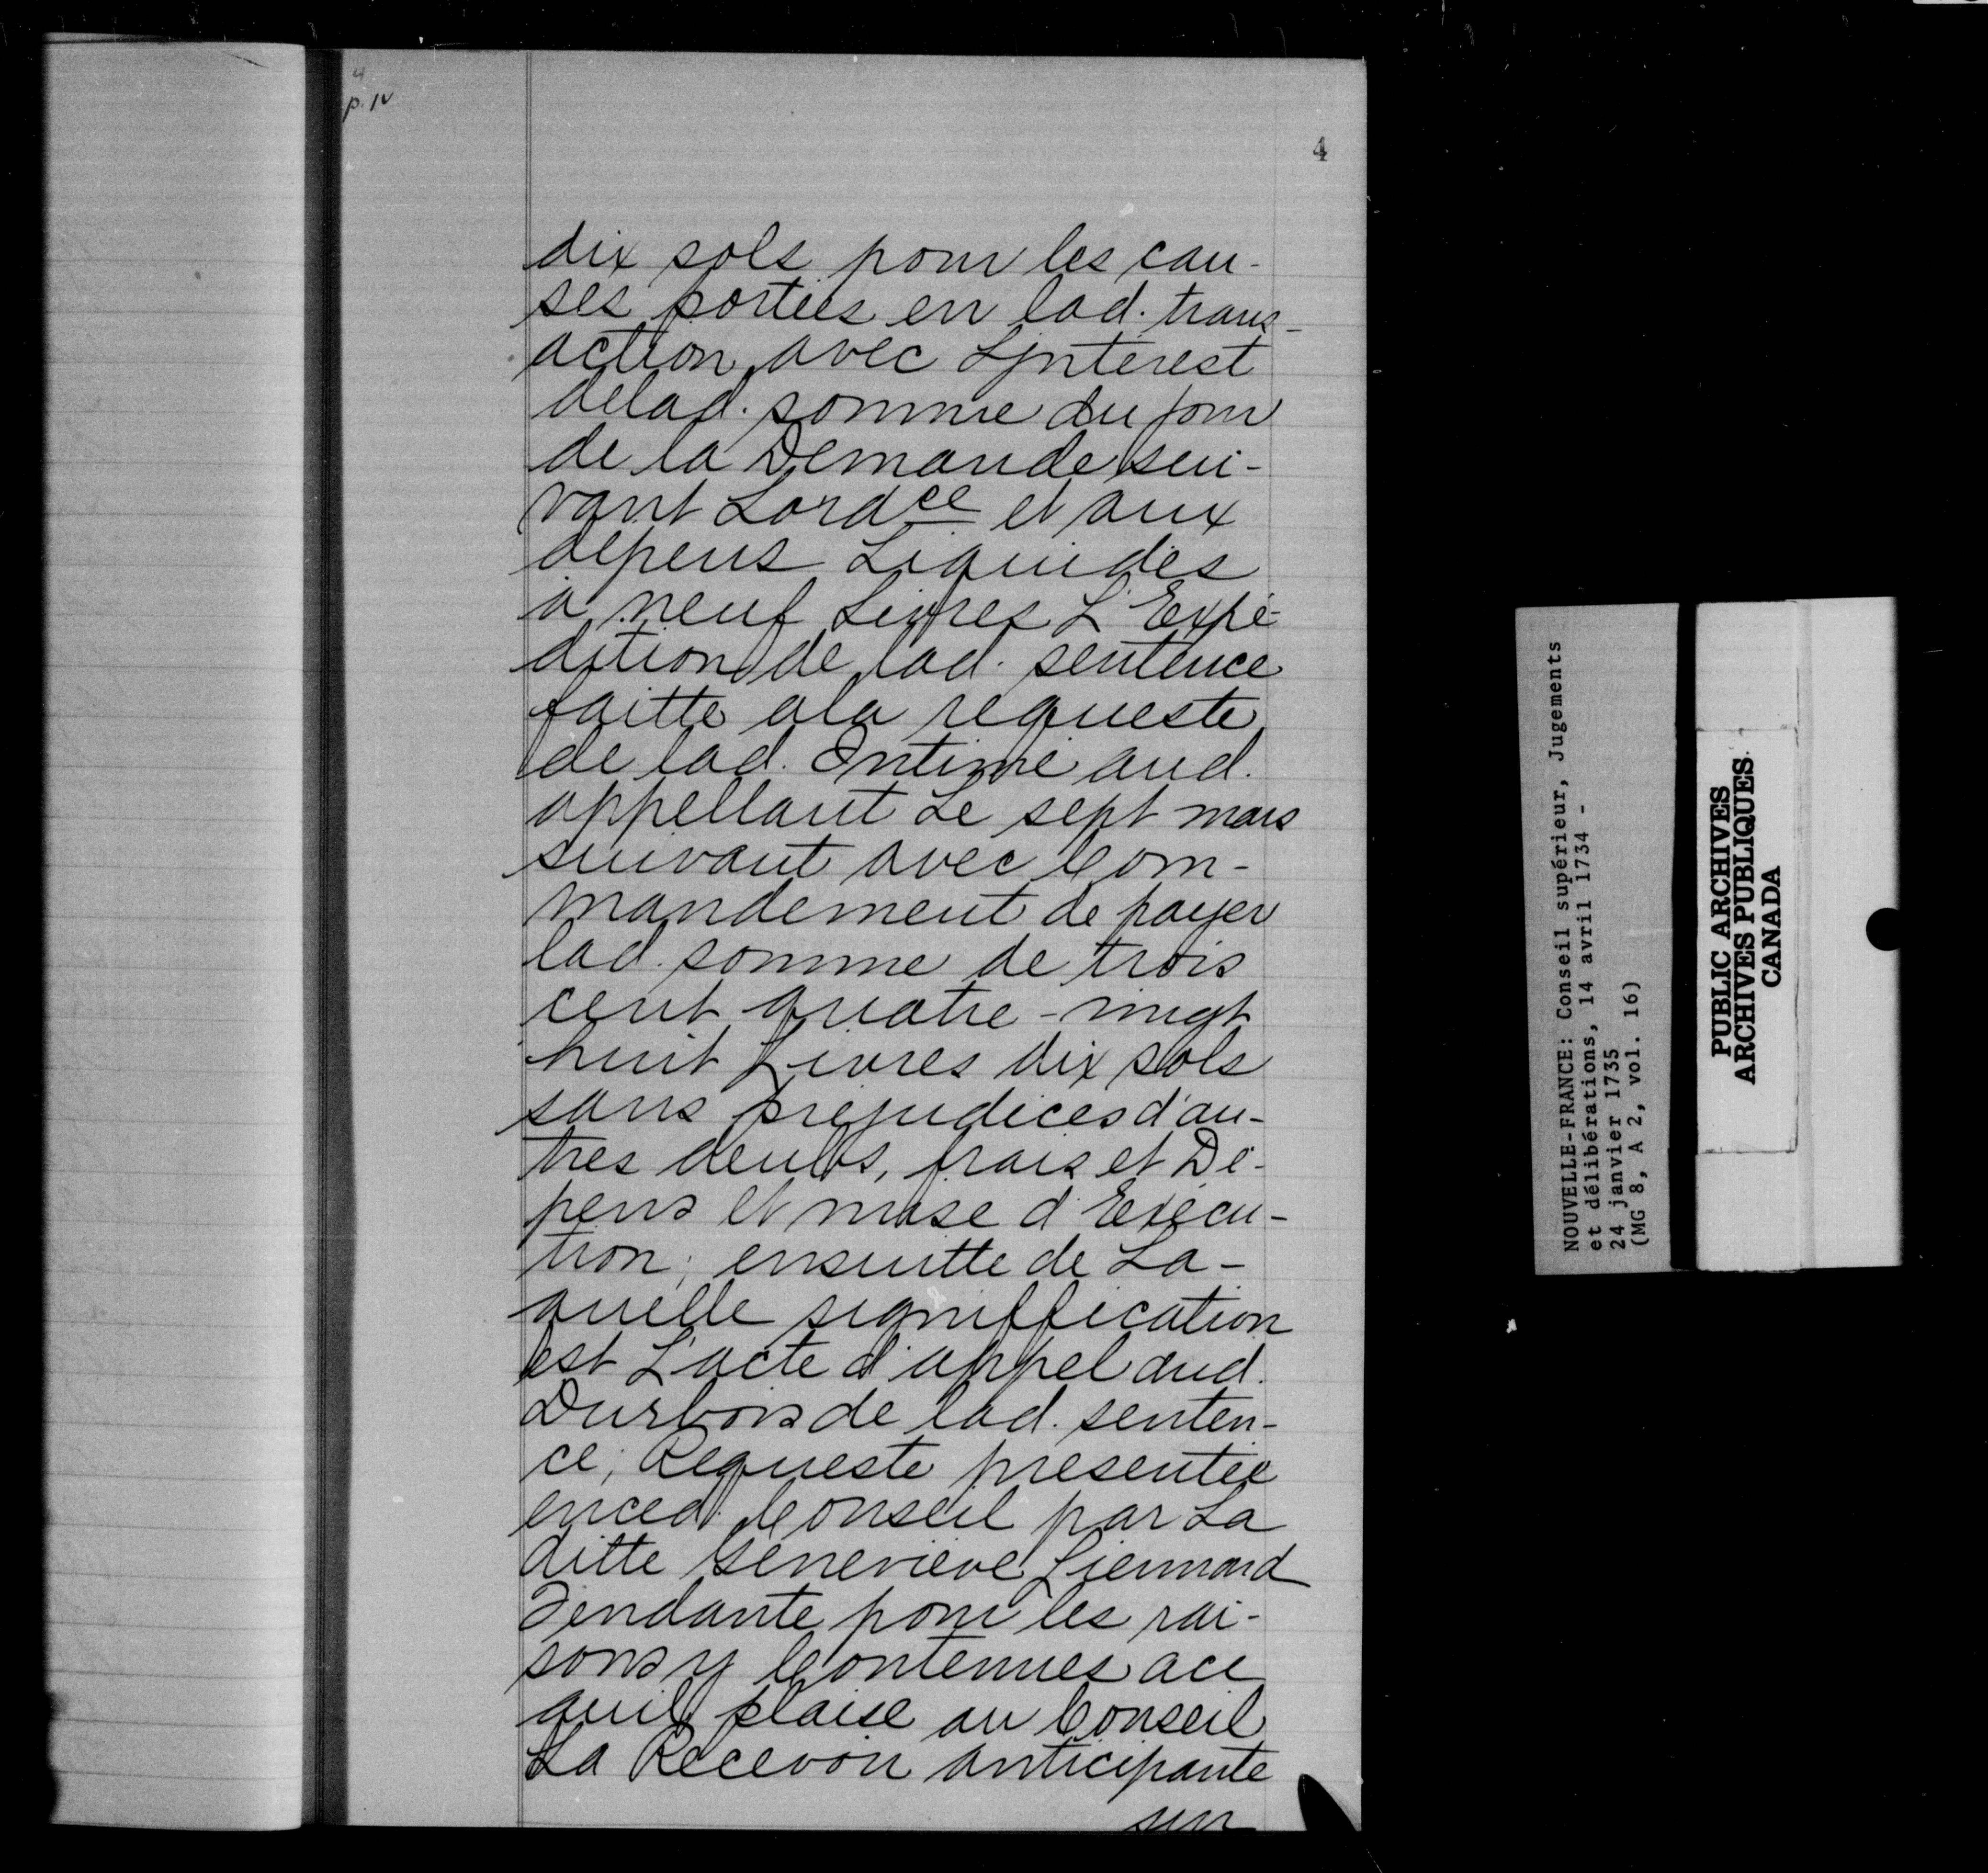 4
p. 1v
4
dix sols pour les cau-
ses portées en lad. trans-
action avec Ljnterest
delad. somme du jour
de la Demande sui-
vant Lordce et aux
depens Liquidés
à neuf Livres L'Expé-
dition de lad. sentence
faitte ala requeste
de lad. Intimé aud.
appellant Le sept mars
suivant avec Com-
mandement de payer
lad. somme de trois
cent quatre-vingt
huit Livres dix sols
sans prejudices d'au-
tres deubs, frais et Dé-
pens et mise d'Execu-
tion; ensuitte de La-
quelle signiffication
est L'acte d'appel dud.
Dursbois de lad. senten-
ce; Requeste presentée
enced. Conseil par La
ditte Geneviève Liennard
Tendante pour les rai-
sons y Contenues ace
quil plaise au Conseil
La Recevoir anticipante
sur
NOUVELLE-FRANCE: Conseil supérieur, Jugements
et délibérations, 14 avril 1734 -
24 janvier 1735
(MG 8, A 2, vol. 16)
PUBLIC ARCHIVES
ARCHIVES PUBLIQUES
CANADA